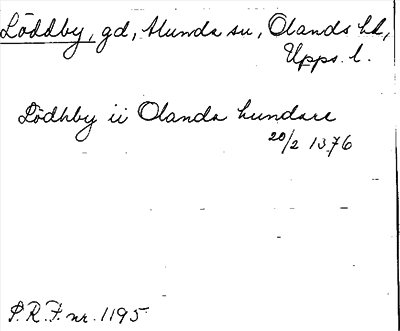 Löddby, gd, Alunda sn, Olands hd,
Upps. l.
Lödhby ii Olanda hundare
20/2 1376
P.R.F. nr. 1195